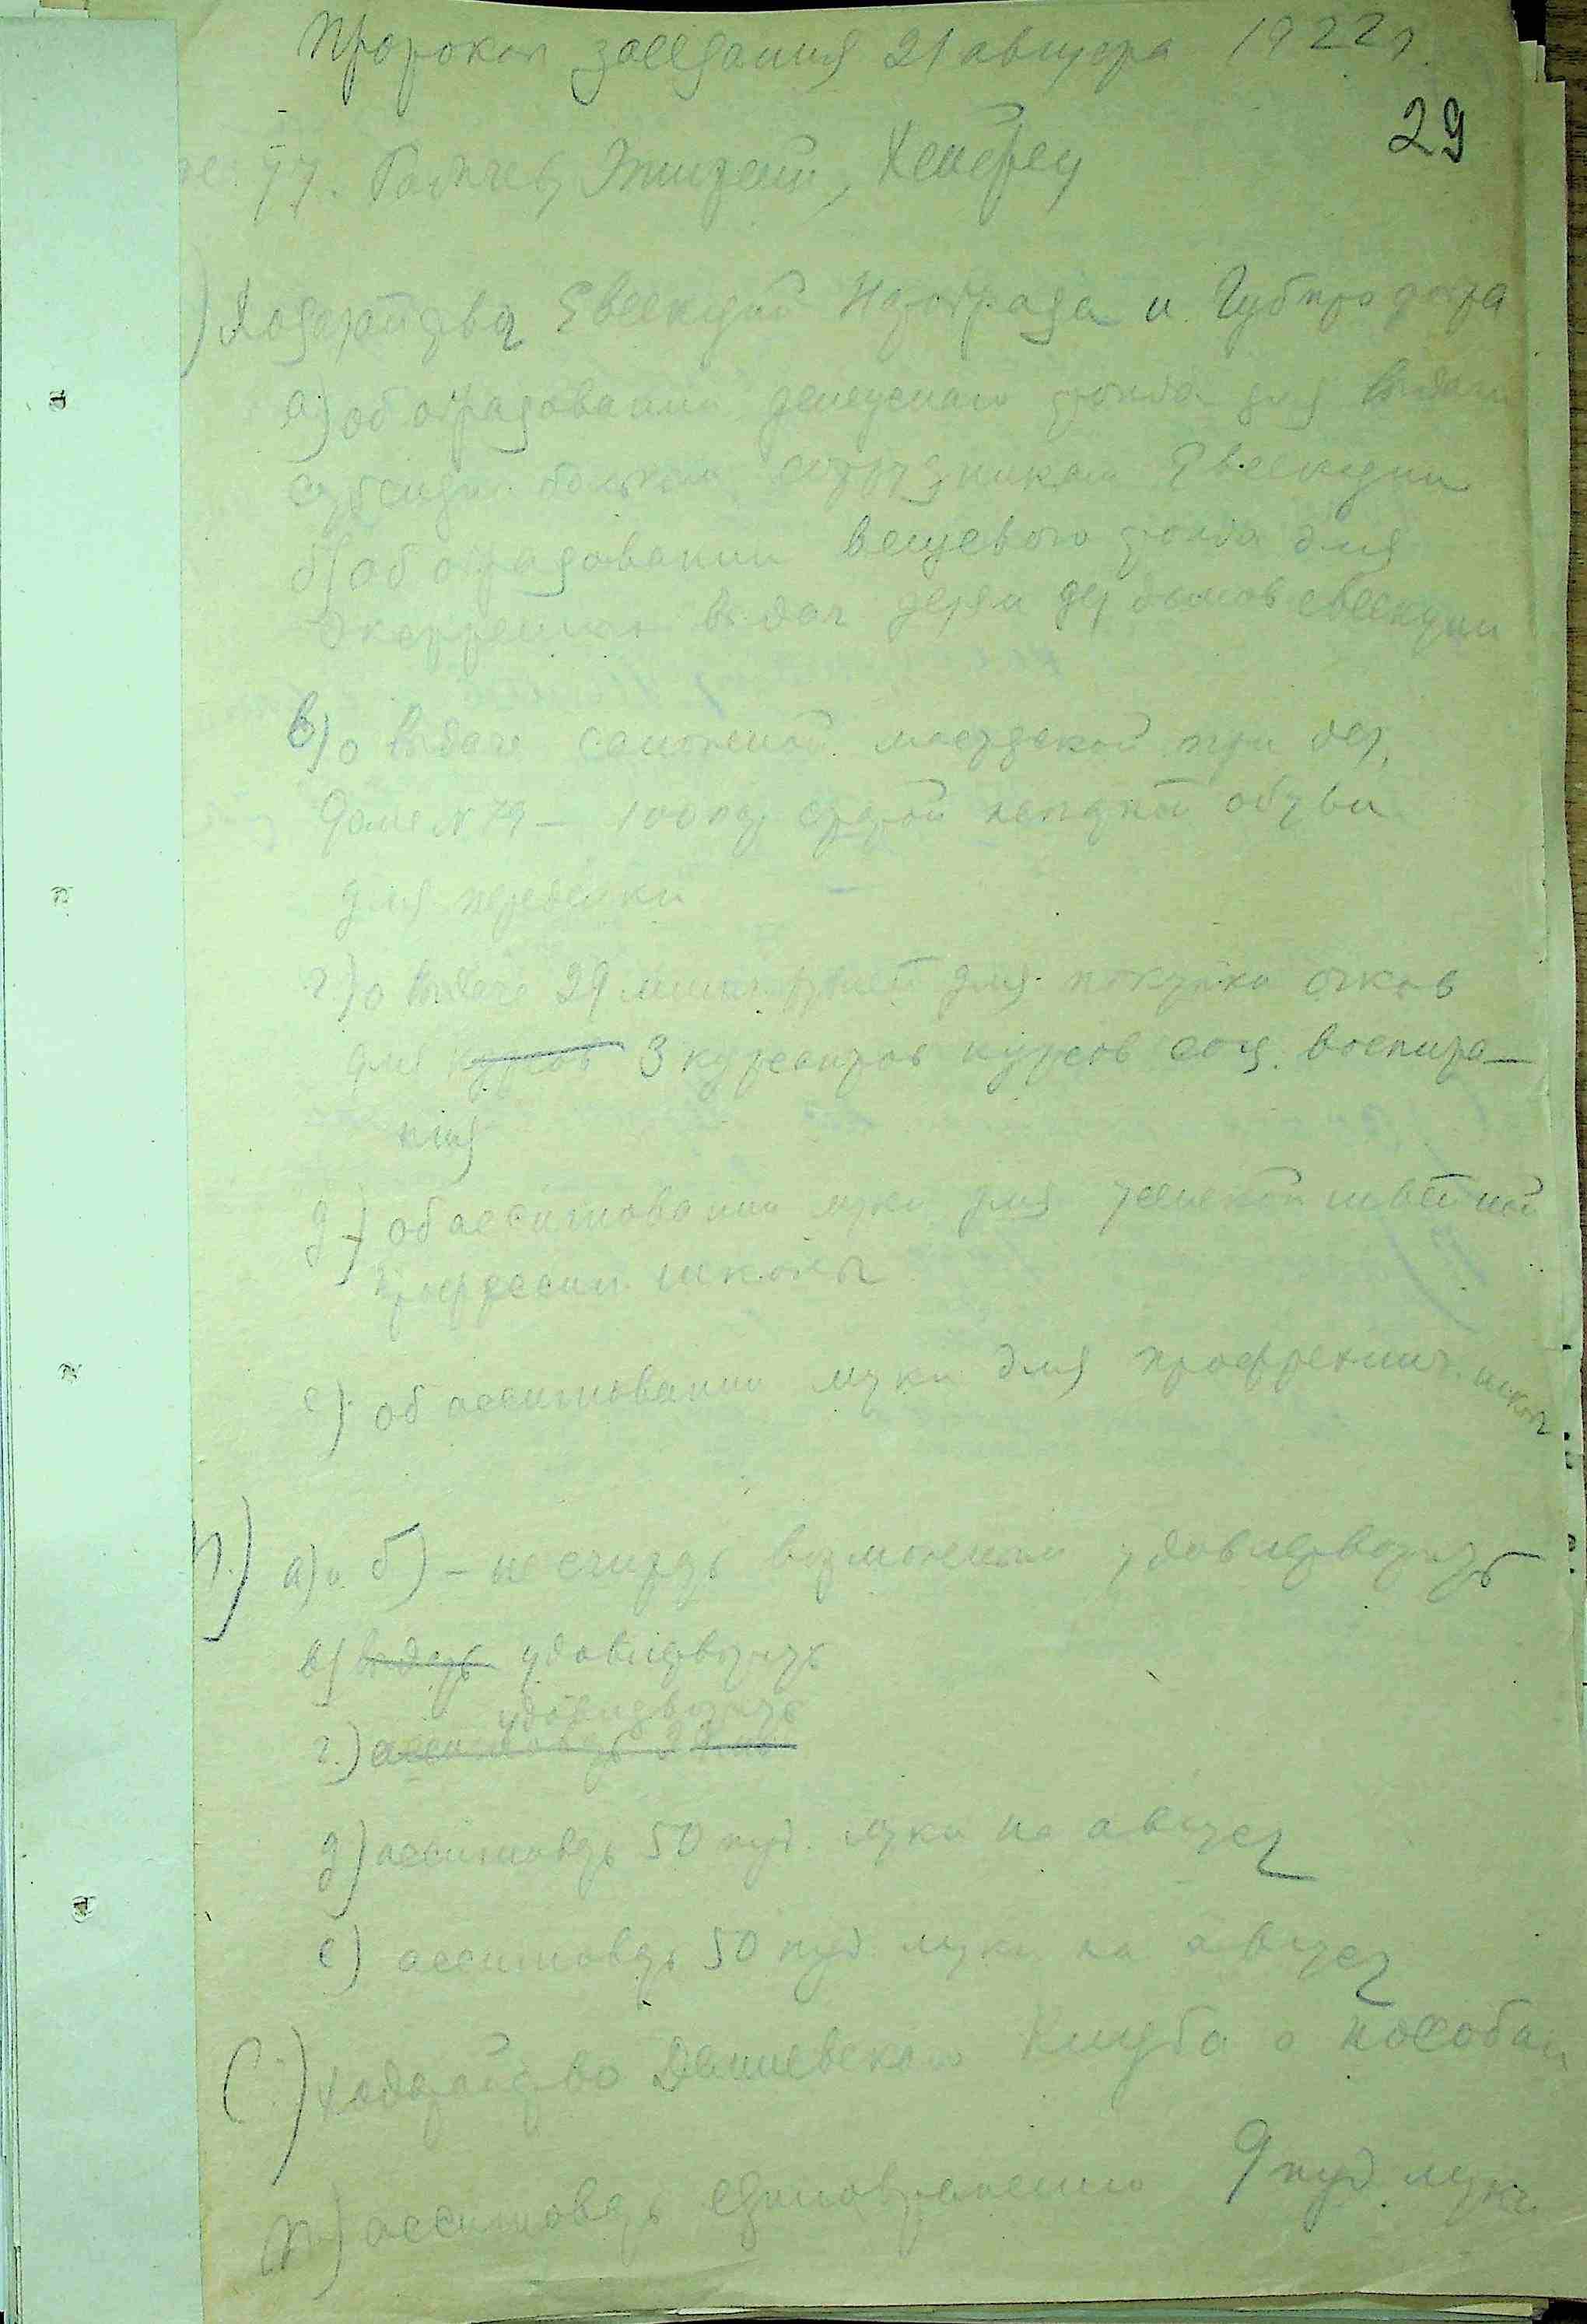 Протокол заседания 21 августа 1922 г.
29
т.т. Гальчев,
Ходатайства Евсекции Наробраза и Губпрофобра
а) об образовании денежного фонда для выдачи
субсидий больным сотрудникам Евсекции
б) об образовании вещевого фонда для
экстренных выдач детям дет домов евсекции
в) о выдаче сапожной мастерской при дет.
доме N 79 – 100 пд старой кожаной обуви
для переделки
г.) о выдаче 29 милл рублей для покупки очков
для курсов 3 курсантов курсов соц. воспита–
ния
д) об ассигновании муки для женской швейной
професси. школы
е) об ассигновании муки для профтехнич. школы
П.) а) и б) – не считать возможным удовлетворить
в) выдать удовлетворить
удовлетворить
г.) ассигновать
д) ассигновать 50 пуд. муки на август
е) ассигновать 50 пуд муки на август
С.) Ходатайство Клуба о пособии
П) ассигновать единовременно 9 пуд. муки